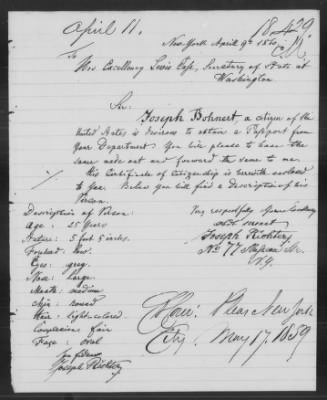 April 11.
18429
New York April 9th 1860
To
His Excellency Lewis Cass, Secretary of State at
Washington
Sir:
Joseph Bohnert a citizen of the
United States is desirous to obtain a Passport from
Your Department. You will please to have the
same made out and forward the same to me.
His Certificate of Citizenship is herewith enclosed
to you. Below you will find a Description of his
Person.
Description of Person:
Age: 25 Years
Stature: 5 feet 5 inches.
Forehead: low.
Eyes: grey.
Nose: large.
Mouth: medium
Chin: round
Hair: light-colored.
Complexion: fair
Face: oval
Joseph Richter
Very respectfully Your Excellency
obdt servant
Joseph Richter
No 77 St.
N.Y.
New York
City May 17. 1859